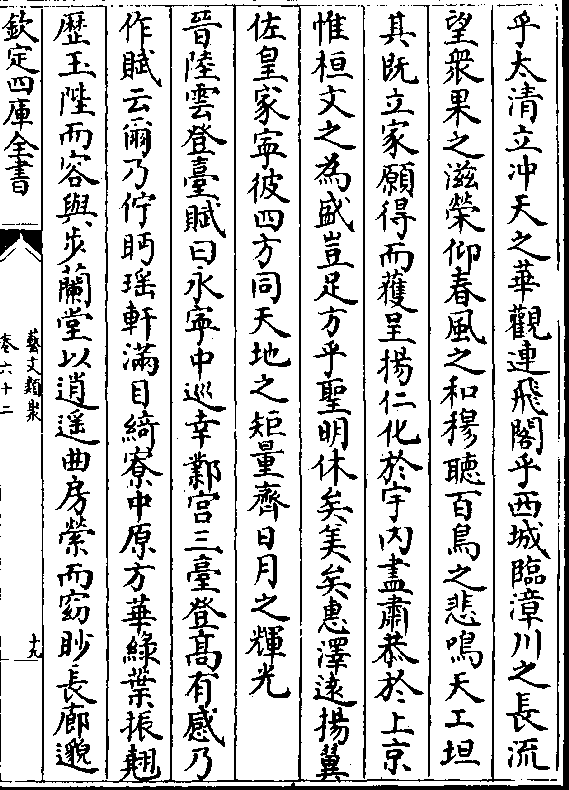 乎太清立冲天之華觀連飛閣乎西城臨漳川之長流
望衆果之滋榮仰春風之和穆聽百鳥之悲鳴天工坦
其既立家願得而獲呈揚仁化於宇内盡肅恭於上京
惟桓文之為盛豈足方乎聖明休矣美矣惠澤逺揚翼
佐皇家寜彼四方同天地之矩量齊日月之輝光
晉陸雲登臺賦曰永寜中巡幸鄴宫三臺登髙有感乃
作賦云爾乃佇眄瑶軒滿目綺寮中原方華綠葉振翹
歴玉陛而容與步蘭堂以逍遥曲房縈而窈眇長廊邈
欽定四庫全書
藝文類聚
卷六十二
十九